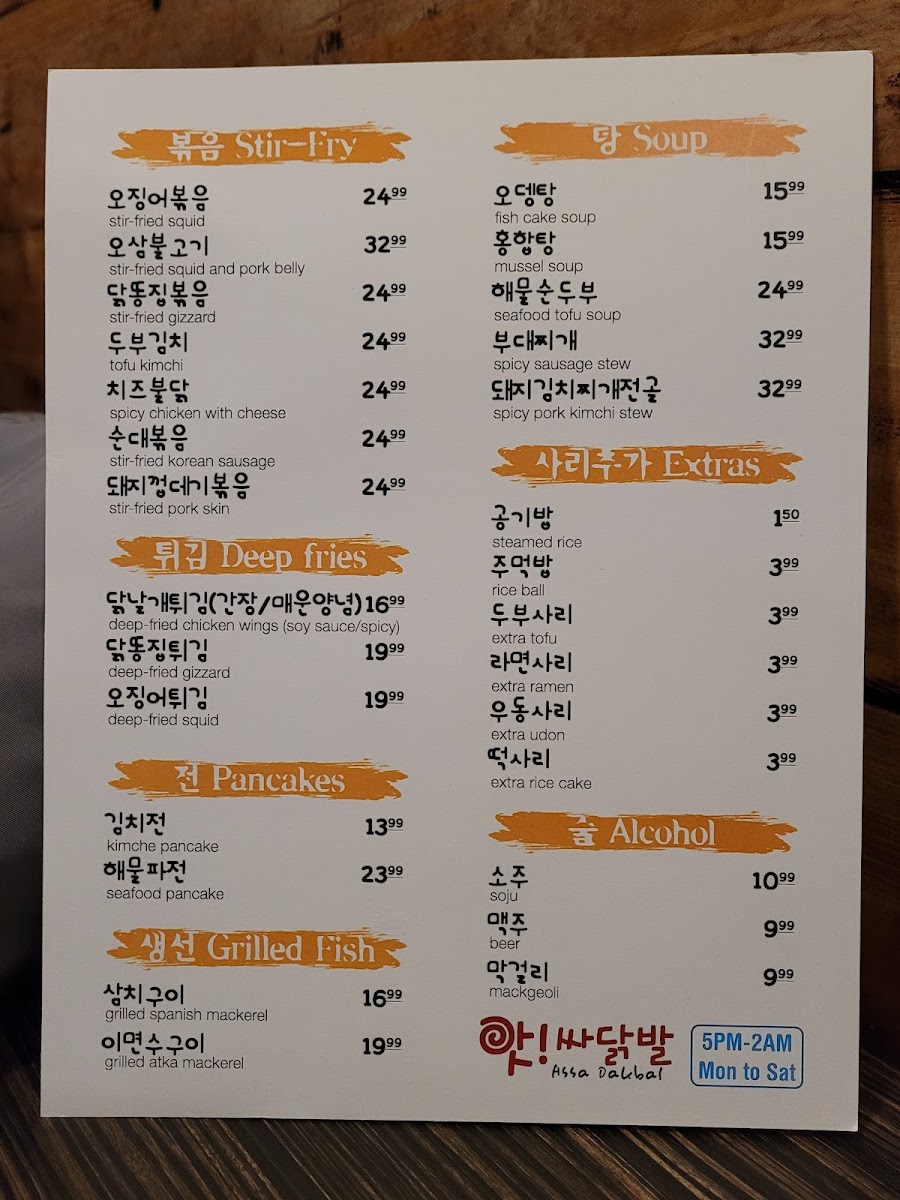 볶음 Stir-Fry
오징어볶음 24.99
stir-fried squid
오삼불고기 32.99
stir-fried squid and pork belly
닭똥집볶음 24.99
stir-fried gizzard
두부김치 24.99
tofu kimchi
치즈불닭 24.99
spicy chicken with cheese
순대볶음 24.99
stir-fried korean sausage
돼지껍데기볶음 24.99
stir-fried pork skin
튀김 Deep fries
닭날개튀김(간장/매운양념) 16.99
deep-fried chicken wings (soy sauce/spicy)
닭똥집튀김 19.99
deep-fried gizzard
오징어튀김 19.99
deep-fried squid
전 Pancakes
김치전 13.99
kimche pancake
해물파전 23.99
seafood pancake
생선 Grilled Fish
삼치구이 16.99
grilled spanish mackerel
이면수구이 19.99
grilled atka mackerel
탕 Soup
오뎅탕 15.99
fish cake soup
홍합탕 15.99
mussel soup
해물순두부 24.99
seafood tofu soup
부대찌개 32.99
spicy sausage stew
돼지김치찌개전골 32.99
spicy pork kimchi stew
사리추가 Extras
공기밥 1.50
steamed rice
주먹밥 3.99
rice ball
두부사리 3.99
extra tofu
라면사리 3.99
extra ramen
우동사리 3.99
extra udon
떡사리 3.99
extra rice cake
술 Alcohol
소주 10.99
soju
맥주 9.99
beer
막걸리 9.99
mackgeoli
앗!싸닭발
Assa Dakbal
5PM-2AM
Mon to Sat